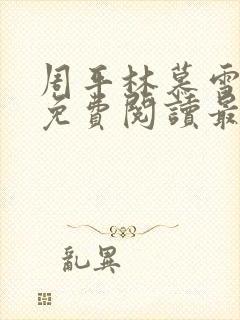 周平林慕雪
免費閱讀最
亂異